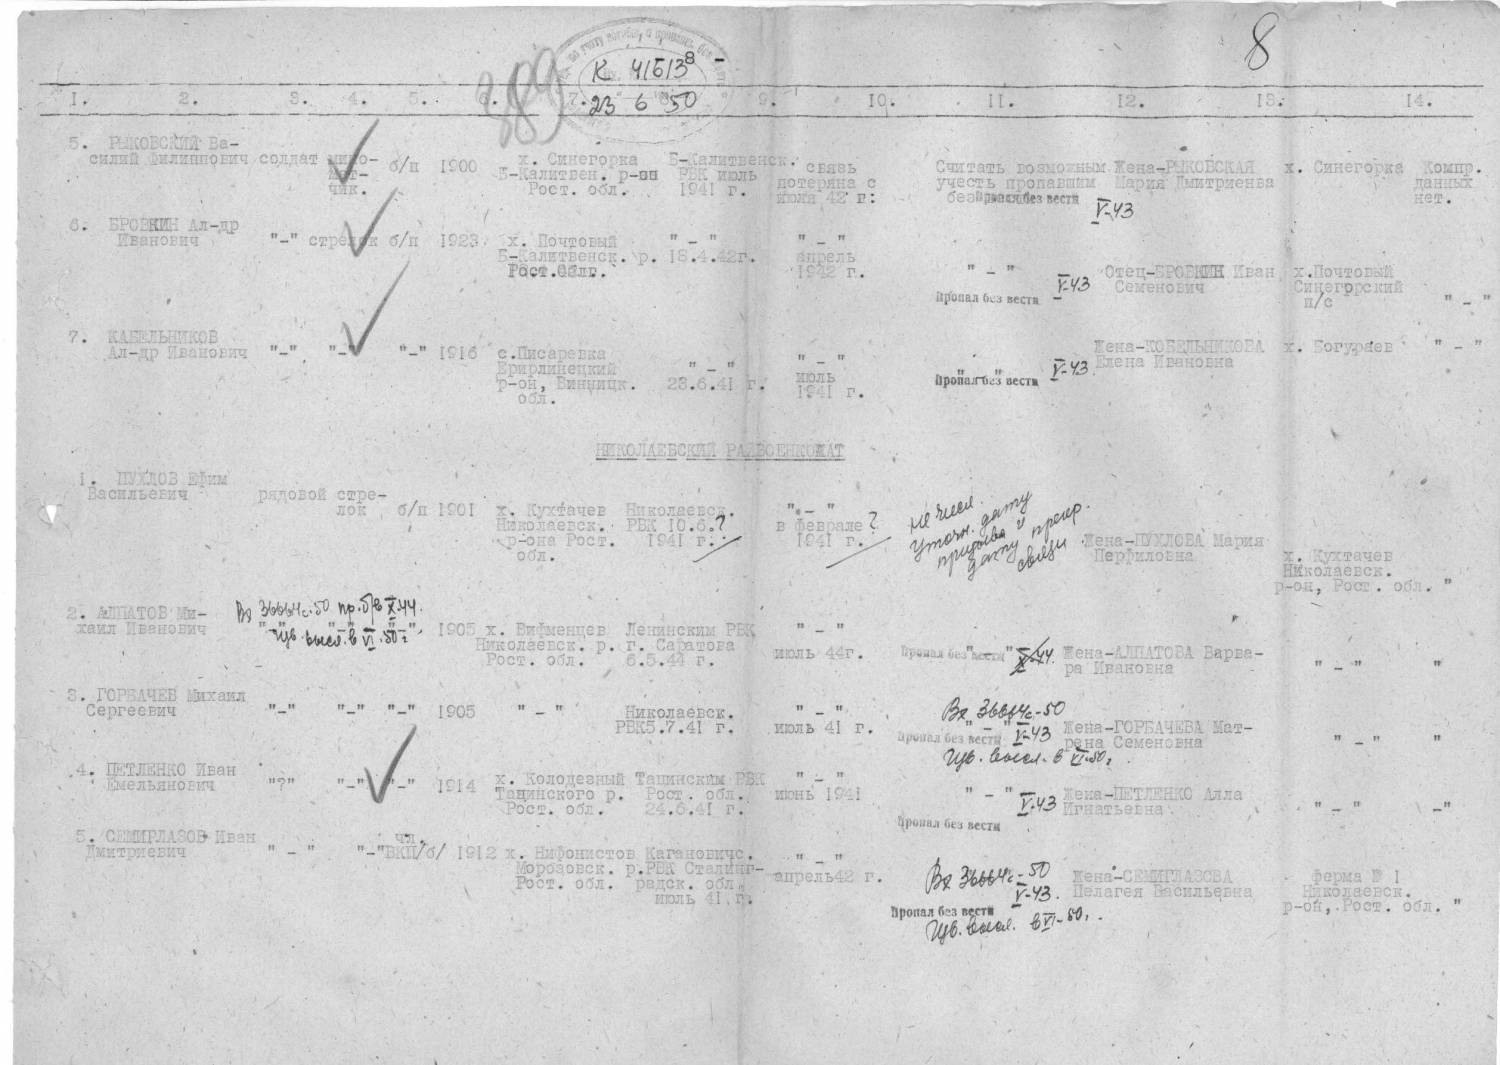 8
389
К 41513 8 -
23 6 50
1. 2. 3. 4. 5. 6. 7. 8. 9. 10. 11. 12. 13. 14.
5. РЫКОВСКИЙ Ва-
силий Филиппович солдат мино- б/п 1900 х. Синегорка Б-Калитвенск. связь Считать возможным Жена-РЫКОВСКАЯ х. Синегорка Компр.
мет- Б-Калитвен. р-он РВК июль потеряна с учесть пропавшим Мария Дмитриевна данных
чик. Рост. обл. 1941 г. июля 42 г: без Пропал без вести V-43 нет.
6. БРОВКИН Ал-др
Иванович "-" стрелок б/п 1923 х. Почтовый " - " " - "
Б-Калитвенск. р. 18.4.42г. апрель
Рост.обл. 1942 г. " - " V-43 Отец-БРОВКИН Иван х.Почтовый
Семенович Синегорский
Пропал без вести п/с " - "
7. КАБЕЛЬНИКОВ
Ал-др Иванович "-" "-" "-" 1916 с.Писаревка " - " " - " Жена-КОБЕЛЬНИКОВА х. Богураев " - "
Ерирлинецкий июль " - " V-43 Елена Ивановна
р-он, Винницк. 23.6.41 г. 1941 г. Пропал без вести
обл.
НИКОЛАЕВСКИЙ РАЙВОЕНКОМАТ
1. ПУХЛОВ Ефим
Васильевич рядовой стре-
лок б/п 1901 х. Кухтачев Николаевск. " - "
Николаевск. РВК 10.6.? в феврале ?
р-она Рост. 1941 г. 1941 г.
обл.
не числ.
Уточн. дату
призыва и
дату прекр.
связи
Жена-ПУХЛОВА Мария
Перфиловна х. Кухтачев
Николаевск.
р-он, Рост. обл. "
2. АЛПАТОВ Ми-
хаил Иванович "-" "-" "-" 1905 х. Вифменцев Ленинским РВК " - "
Вх 36664с-50 пр. б/в X-44.
Изв. высл. в VI-50г
Николаевск. р. г. Саратова июль 44г. Пропал без вести " - " X-44. Жена-АЛПАТОВА Варва-
Рост. обл. 6.5.44 г. ра Ивановна " - " "
3. ГОРБАЧЕВ Михаил
Сергеевич "-" "-" "-" 1905 " - " Николаевск. " - "
РВК5.7.41 г. июль 41 г.
Вх 36664с-50
" - " V-43 Жена-ГОРБАЧЕВА Мат-
Пропал без вести рена Семеновна " - " "
Изв. высл. в VI-50г
4. ПЕТЛЕНКО Иван
Емельянович "?" "-" "-" 1914 х. Колодезный Тацинским РВК " - "
Тацинского р. Рост. обл. июнь 1941 " - " V-43 Жена-ПЕТЛЕНКО Алла
Рост. обл. 24.6.41 г. Игнатьевна " - " -"
Пропал без вести
5. СЕМИГЛАЗОВ Иван чл.
Дмитриевич " - " "-" ВКП/б/ 1912 х. Нифонистов Кагановичс. " - "
Морозовск. р. РВК Сталинг- апрель42 г.
Рост. обл. радск. обл.
июль 41 г.
Вх 36664с-50 Жена-СЕМИГЛАЗОВА ферма № 1
V-43. Пелагея Васильевна Николаевск.
Пропал без вести р-он, Рост. обл. "
Изв. высл. в VI-50г.